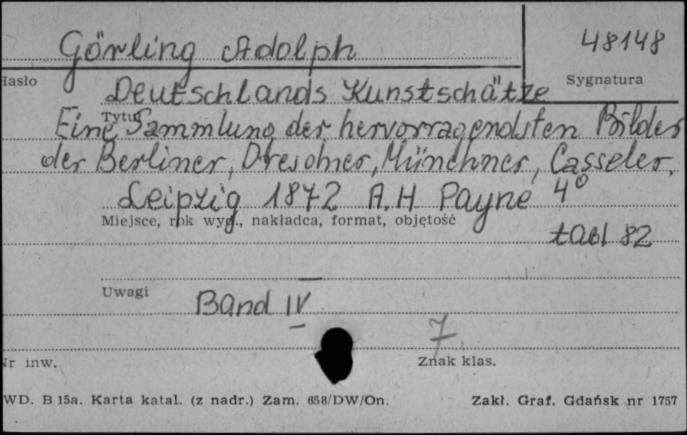 Görling Adolph
48148
Hasło
Sygnatura
Deutschlands Kunstschätze
Tytuł
Eine Sammlung der hervorragendsten Bilder
der Berliner, Dresdner, Münchner, Casseler,
Leipzig 1872 A.H Payne 4°
Miejsce, rok wyd., nakładca, format, objętość
tabl 82
Uwagi
Band IV
7
Nr inw.
Znak klas.
WD. B 15a. Karta katal. (z nadr.) Zam. 658/DW/On.
Zakł. Graf. Gdańsk nr 1757